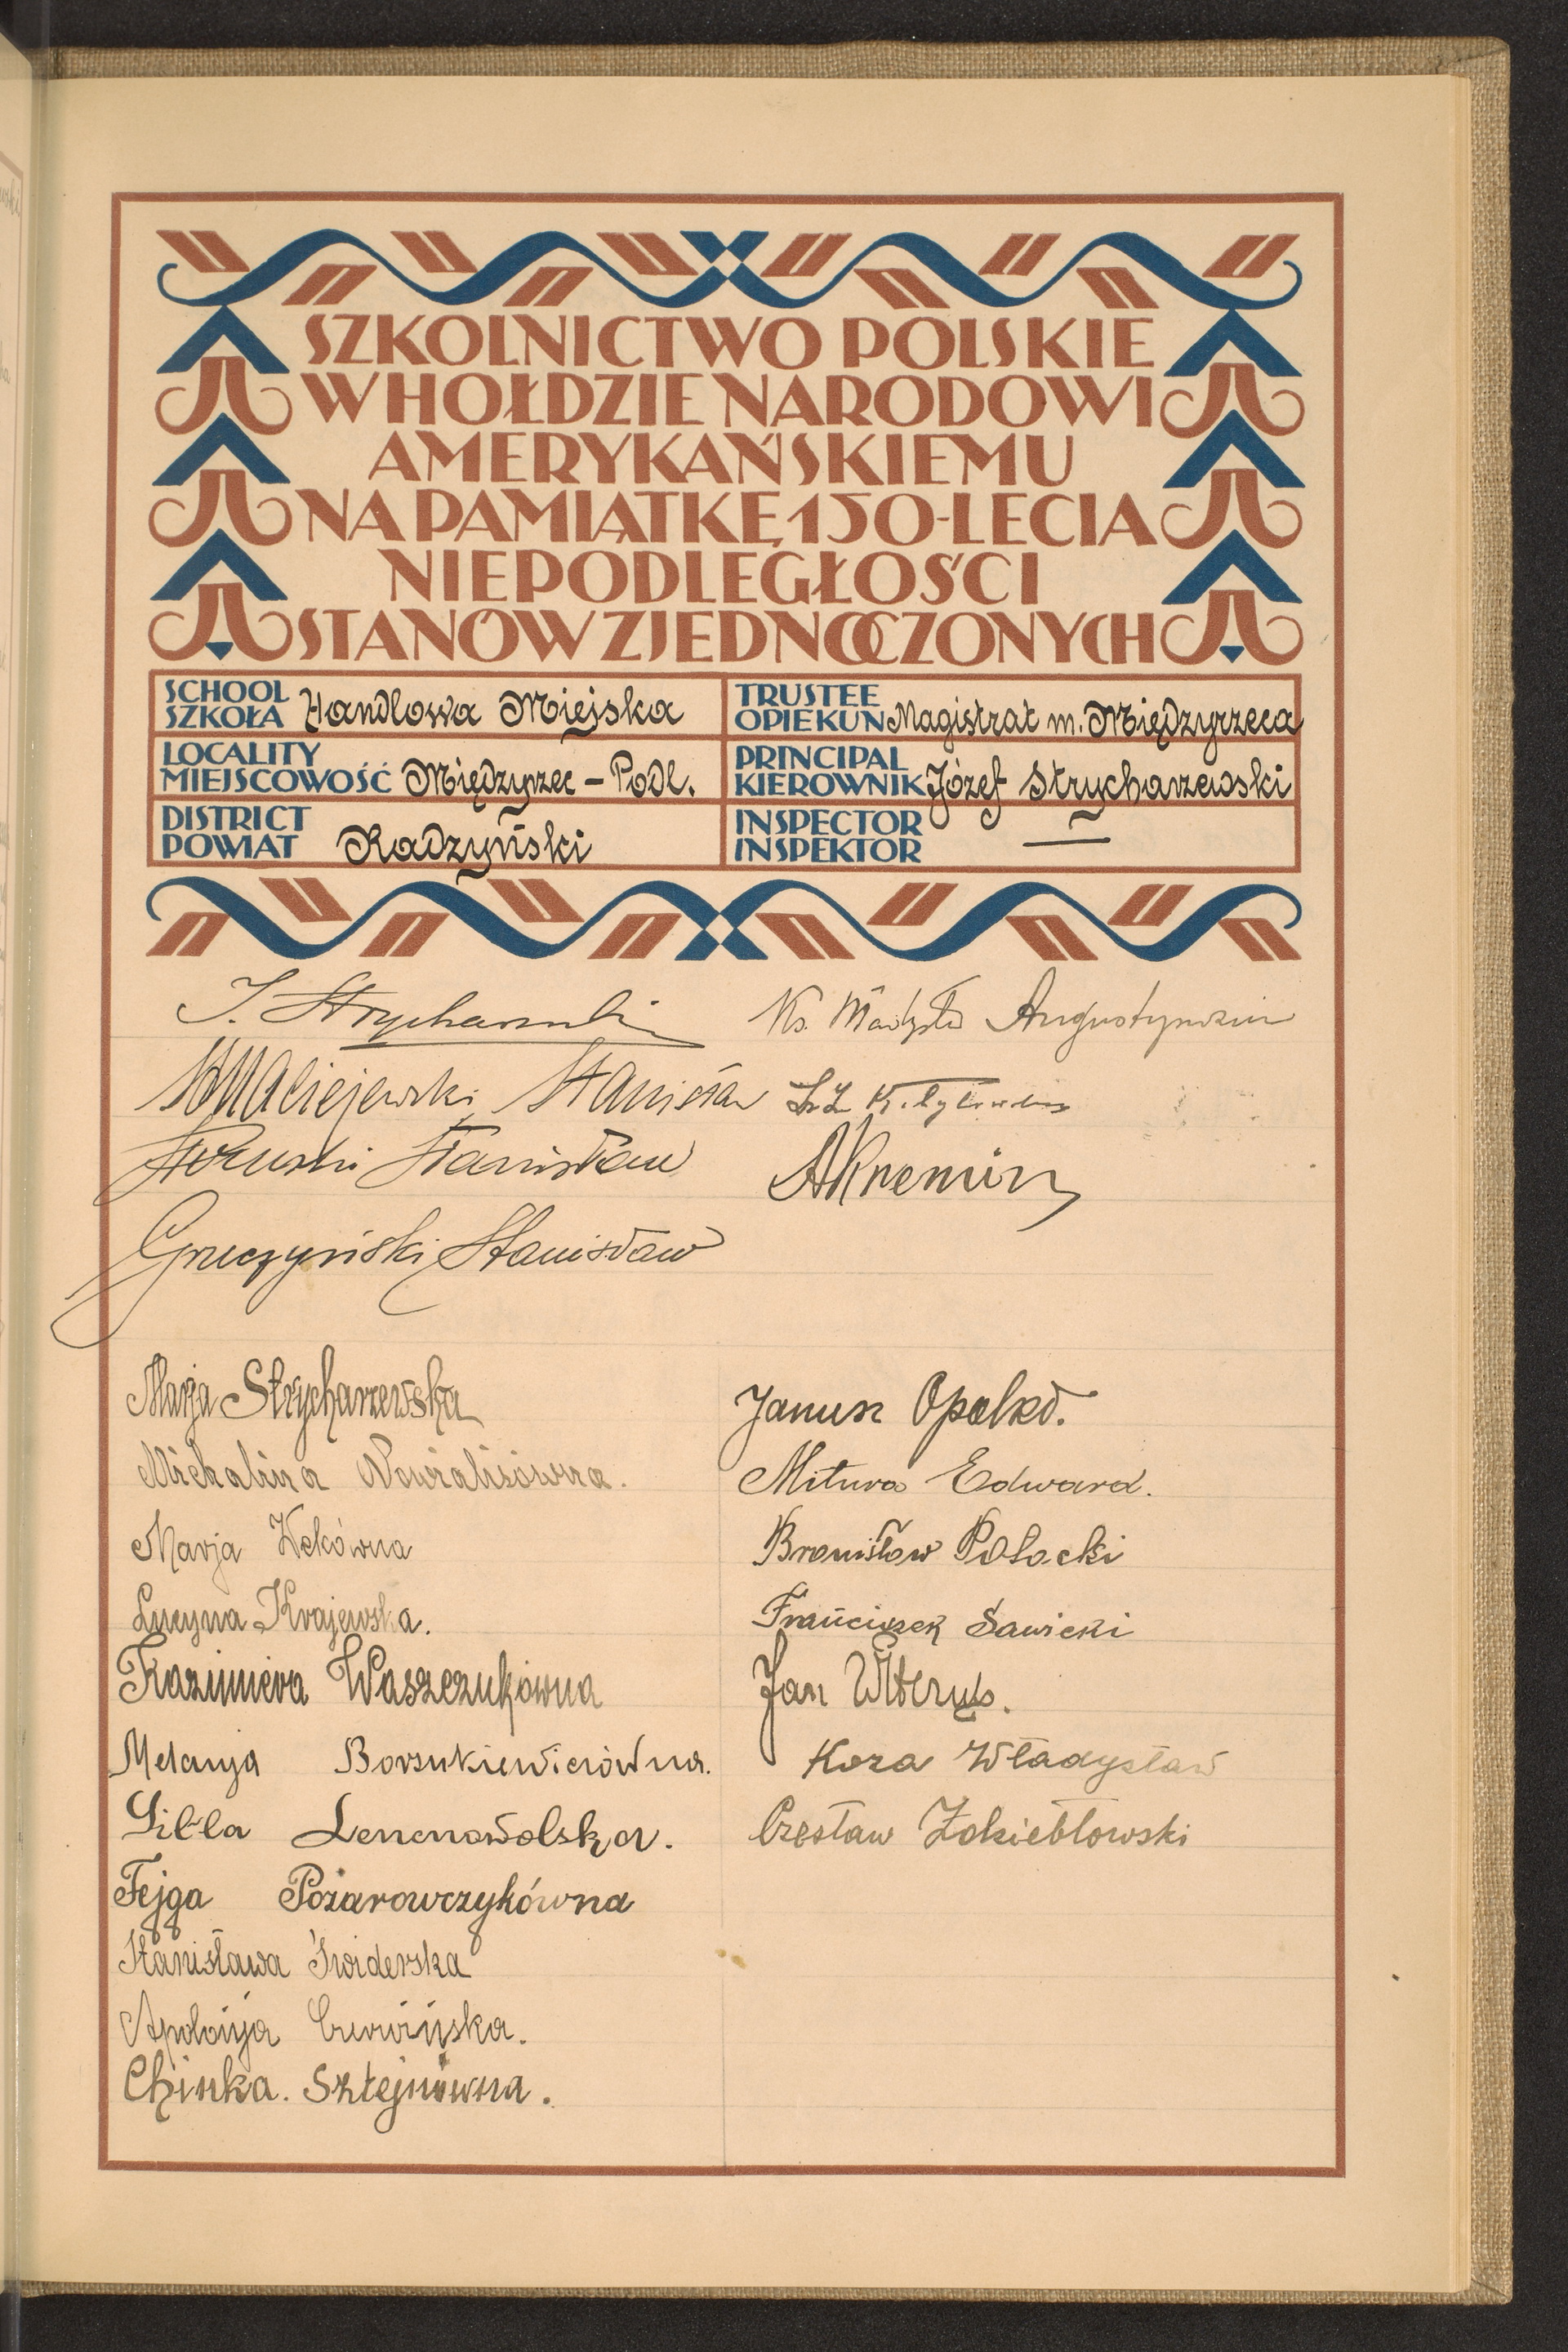 SZKOLNICTWO POLSKIE
W HOŁDZIE NARODOWI
AMERYKAŃSKIEMU
NA PAMIĄTKĘ 150-LECIA
NIEPODLEGŁOŚCI
STANÓW ZJEDNOCZONYCH
SCHOOL
SZKOŁA Handlowa Miejska
LOCALITY
MIEJSCOWOŚĆ Międzyrzec - Podl.
DISTRICT
POWIAT Radzyński
TRUSTEE
OPIEKUN Magistrat m. Międzyrzeca
PRINCIPAL
KIEROWNIK Józef Strycharzewski
INSPECTOR
INSPEKTOR —
J. Strycharzewski
Maciejewski Stanisław
Stanisław
Gruczyński Stanisław
Ks. Augustynowicz
AKremin
Marja Strycharzewska
Michalina
Marja Wekówna
Lucyna Krajewska.
Kazimiera Waszczukówna
Melanja Borsukiewiczówna.
Fejga Pożarowczykówna
Stanisława Świderska
Apolonja
Chinka. Sztejnówna.
Janusz Opolko.
Mitura Edward.
Bronisław Potocki
Franciszek Sawicki
Jan
Koza Władysław
Czesław